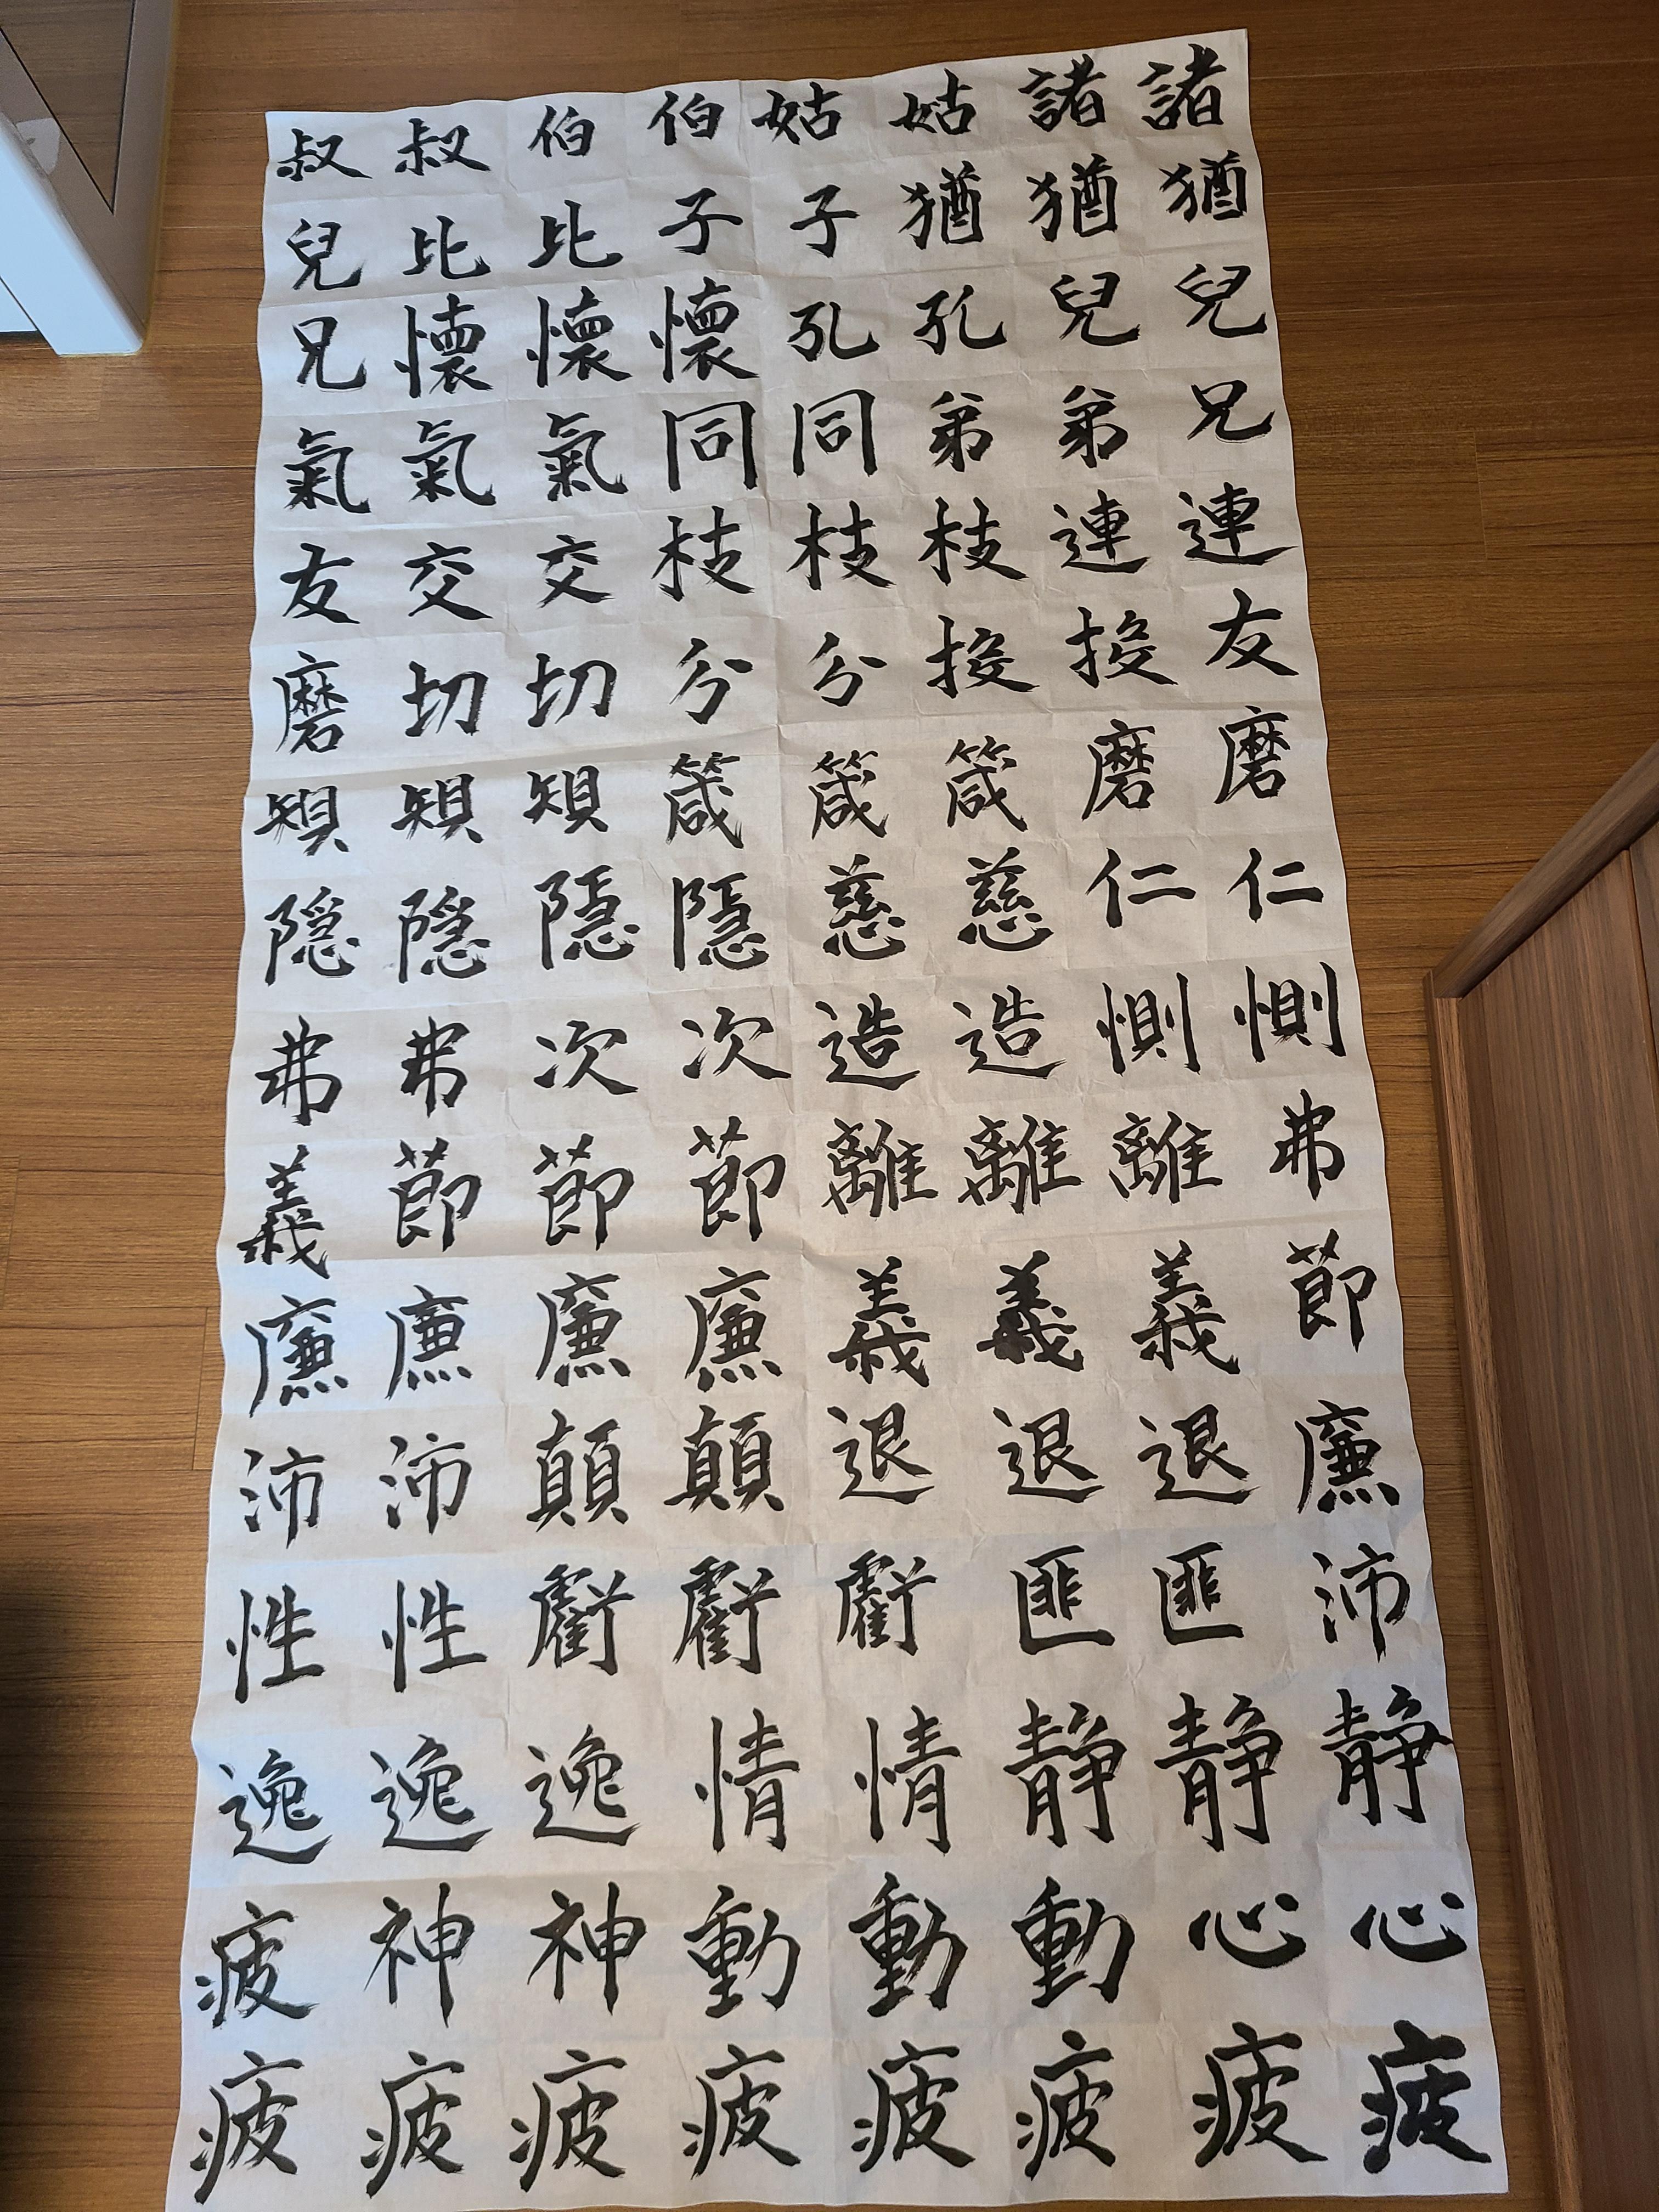 諸諸姑姑伯伯叔叔
猶猶猶子子比比兒
兒兒孔孔懷懷懷兄
兄弟弟同同氣氣氣
連連枝枝枝交交友
友投投分分切切磨
磨磨箴箴箴規規規
仁仁慈慈隱隱隱隱
惻惻造造次次弗弗
弗離離離節節節義
節義義義廉廉廉廉
廉退退退顛顛沛沛
沛匪匪虧虧虧性性
静静静情情逸逸逸
心心動動動神神疲
疲疲疲疲疲疲疲疲